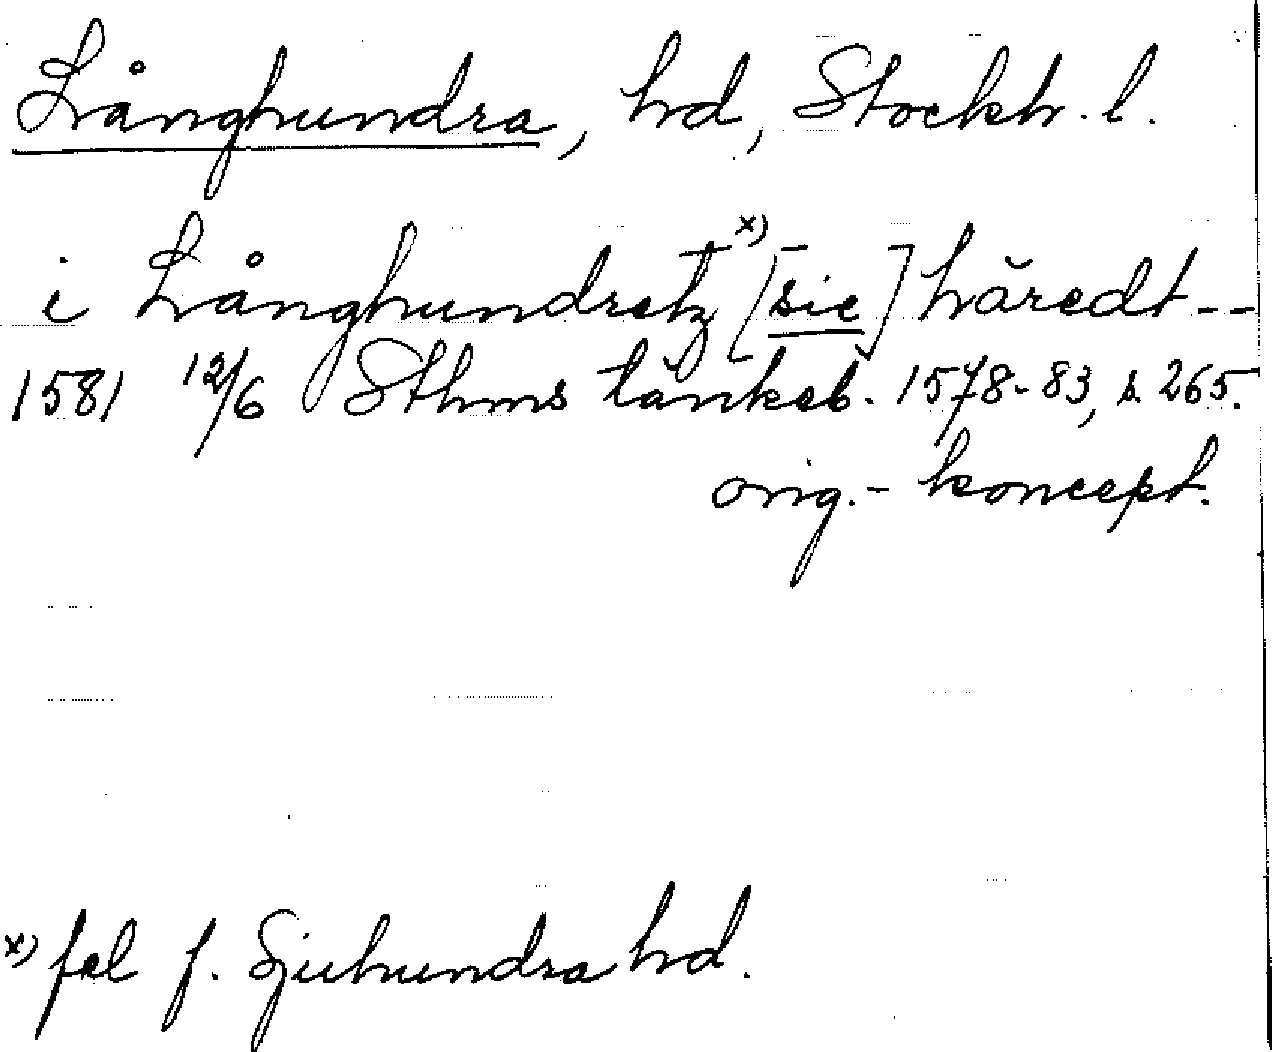 Långhundra, hd, Stockh. l.
i Långhundretz x) [sic] häredt --
1581 12/6 Sthms tänkeb. 1578-83, s. 265.
orig.- koncept.
x) fel f. Sjuhundra hd.